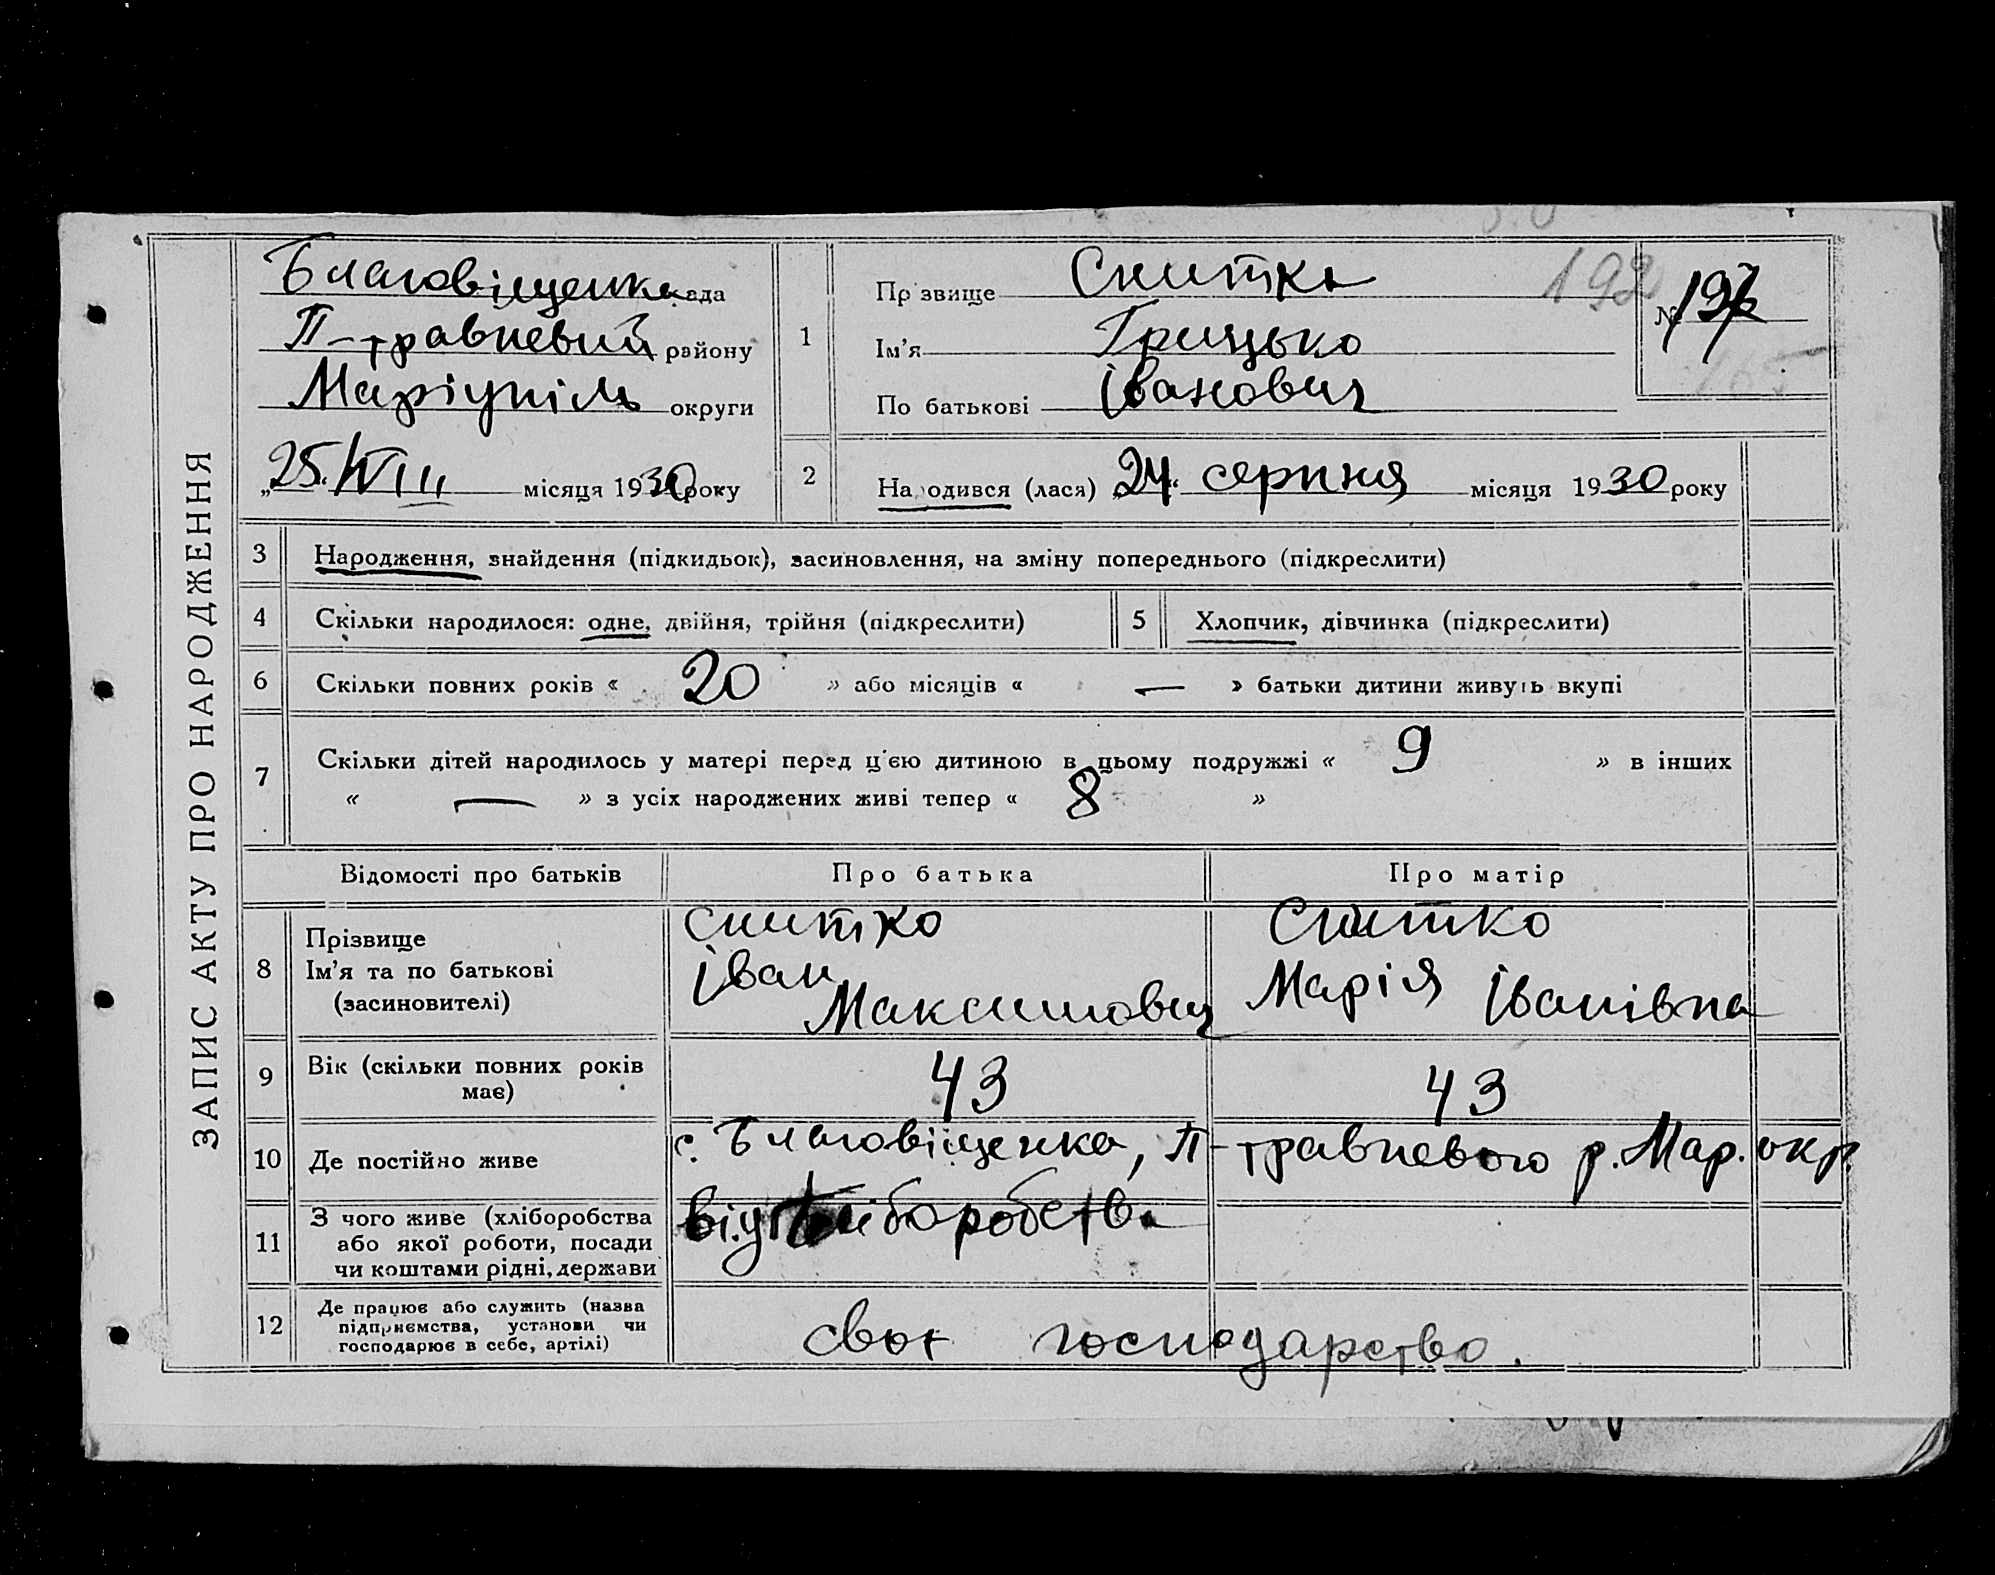 ЗАПИС АКТУ ПРО НАРОДЖЕННЯ
Благовіщенка рада
П-травневий району
Маріупіль округи
„25“ VIII місяця 1930 року
1
Прізвище Снитко
Ім'я Грицько
По батькові Іванович
192
№
2
Народився (лася) „24“ серпня місяця 1930 року
3 Народження, знайдення (підкидьок), засиновлення, на зміну попереднього (підкреслити)
4 Скільки народилося: одне, двійня, трійня (підкреслити) 5 Хлопчик, дівчинка (підкреслити)
6 Скільки повних років « 20 » або місяців « — » батьки дитини живуть вкупі
7 Скільки дітей народилось у матері перед ц'єю дитиною в цьому подружжі « 9 » в інших
« — » з усіх народжених живі тепер « 8 »
Відомості про батьків Про батька Про матір
8 Прізвище
Ім'я та по батькові
(засиновителі)
Снитко
Іван
Максимович
Снитко
Марія Іванівна
9 Вік (скільки повних років має) 43 43
10 Де постійно живе с. Благовіщенка, П-травневого р. Мар. окр.
11 З чого живе (хліборобства
або якої роботи, посади
чи коштами рідні, держави
12 Де працює або служить (назва
підприємства, установи чи
господарює в себе, артілі)
своє господарство.